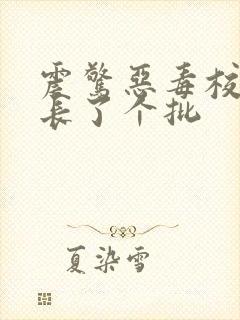 震惊恶毒校
长了个批
夏染雪